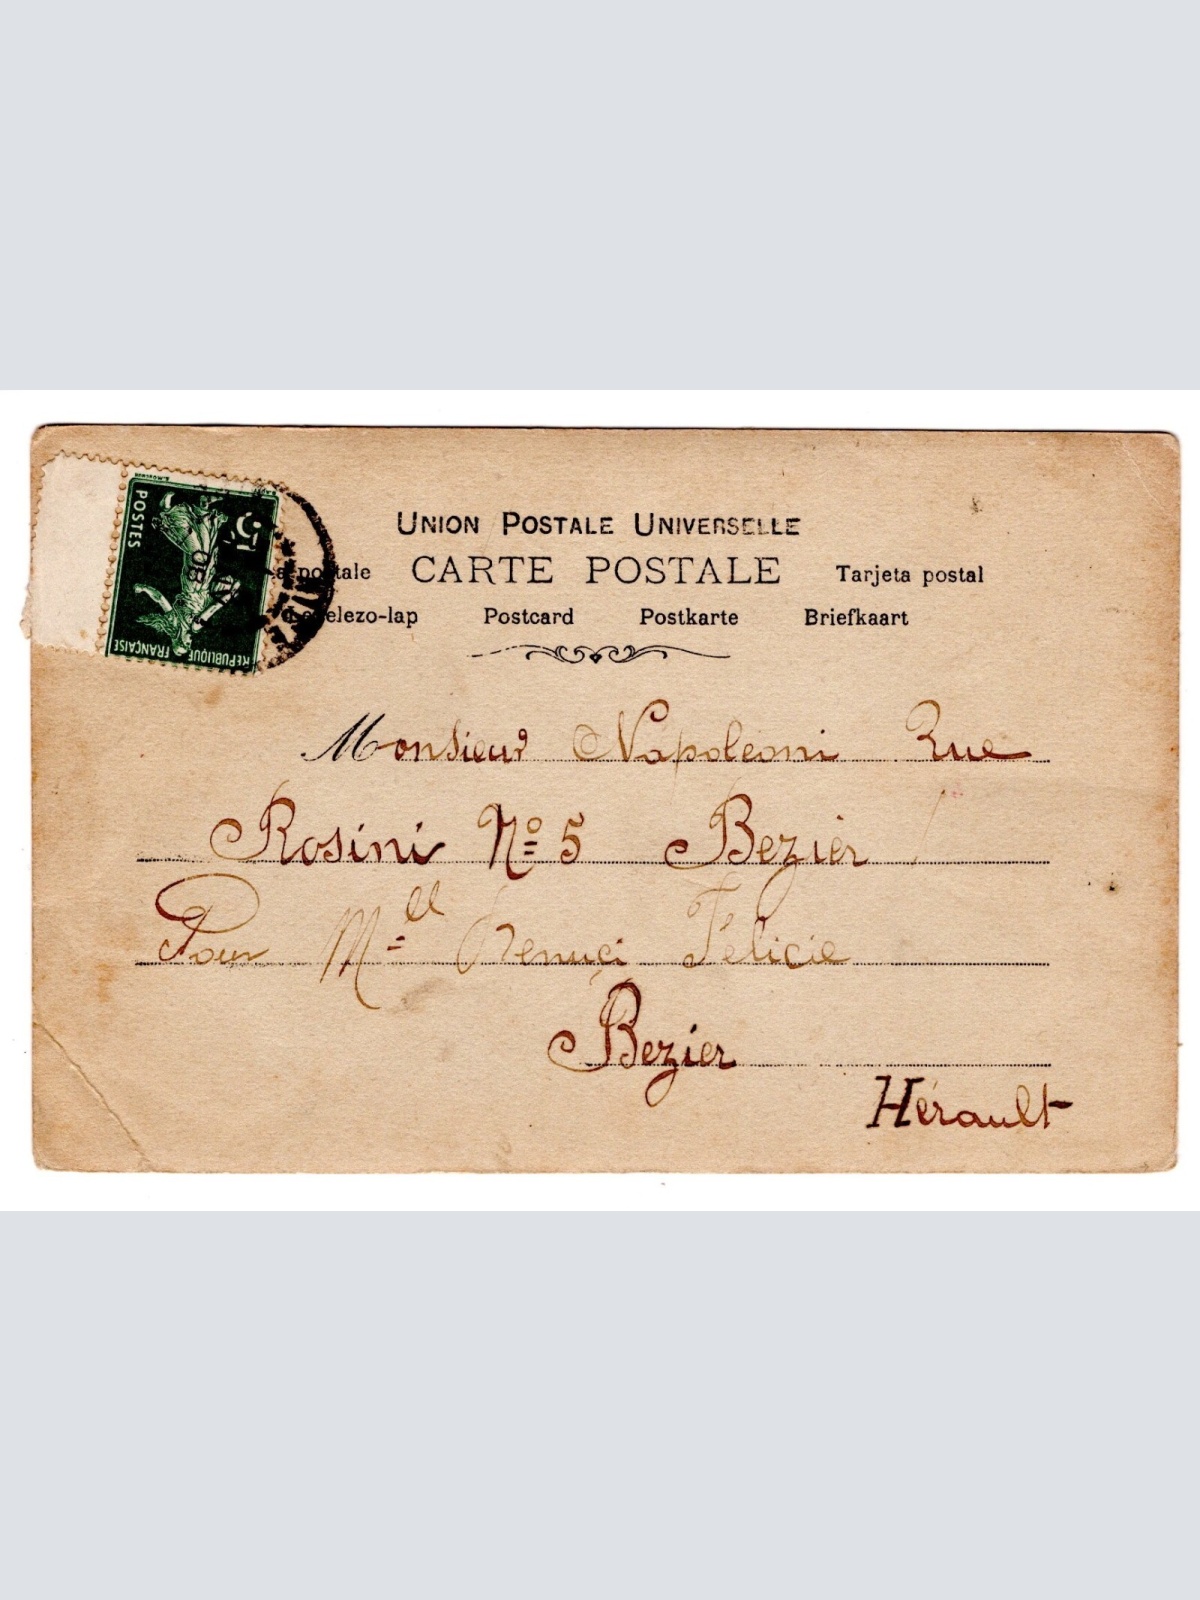 UNION POSTALE UNIVERSELLE
postale CARTE POSTALE Tarjeta postal
Levelezo-lap Postcard Postkarte Briefkaart
POSTES
5c
REPUBLIQUE FRANÇAISE
Monsieur Napoleoni Rue
Rosini No 5 Bezier
Pour Mll Renuçi Félicie
Bezier
Hérault